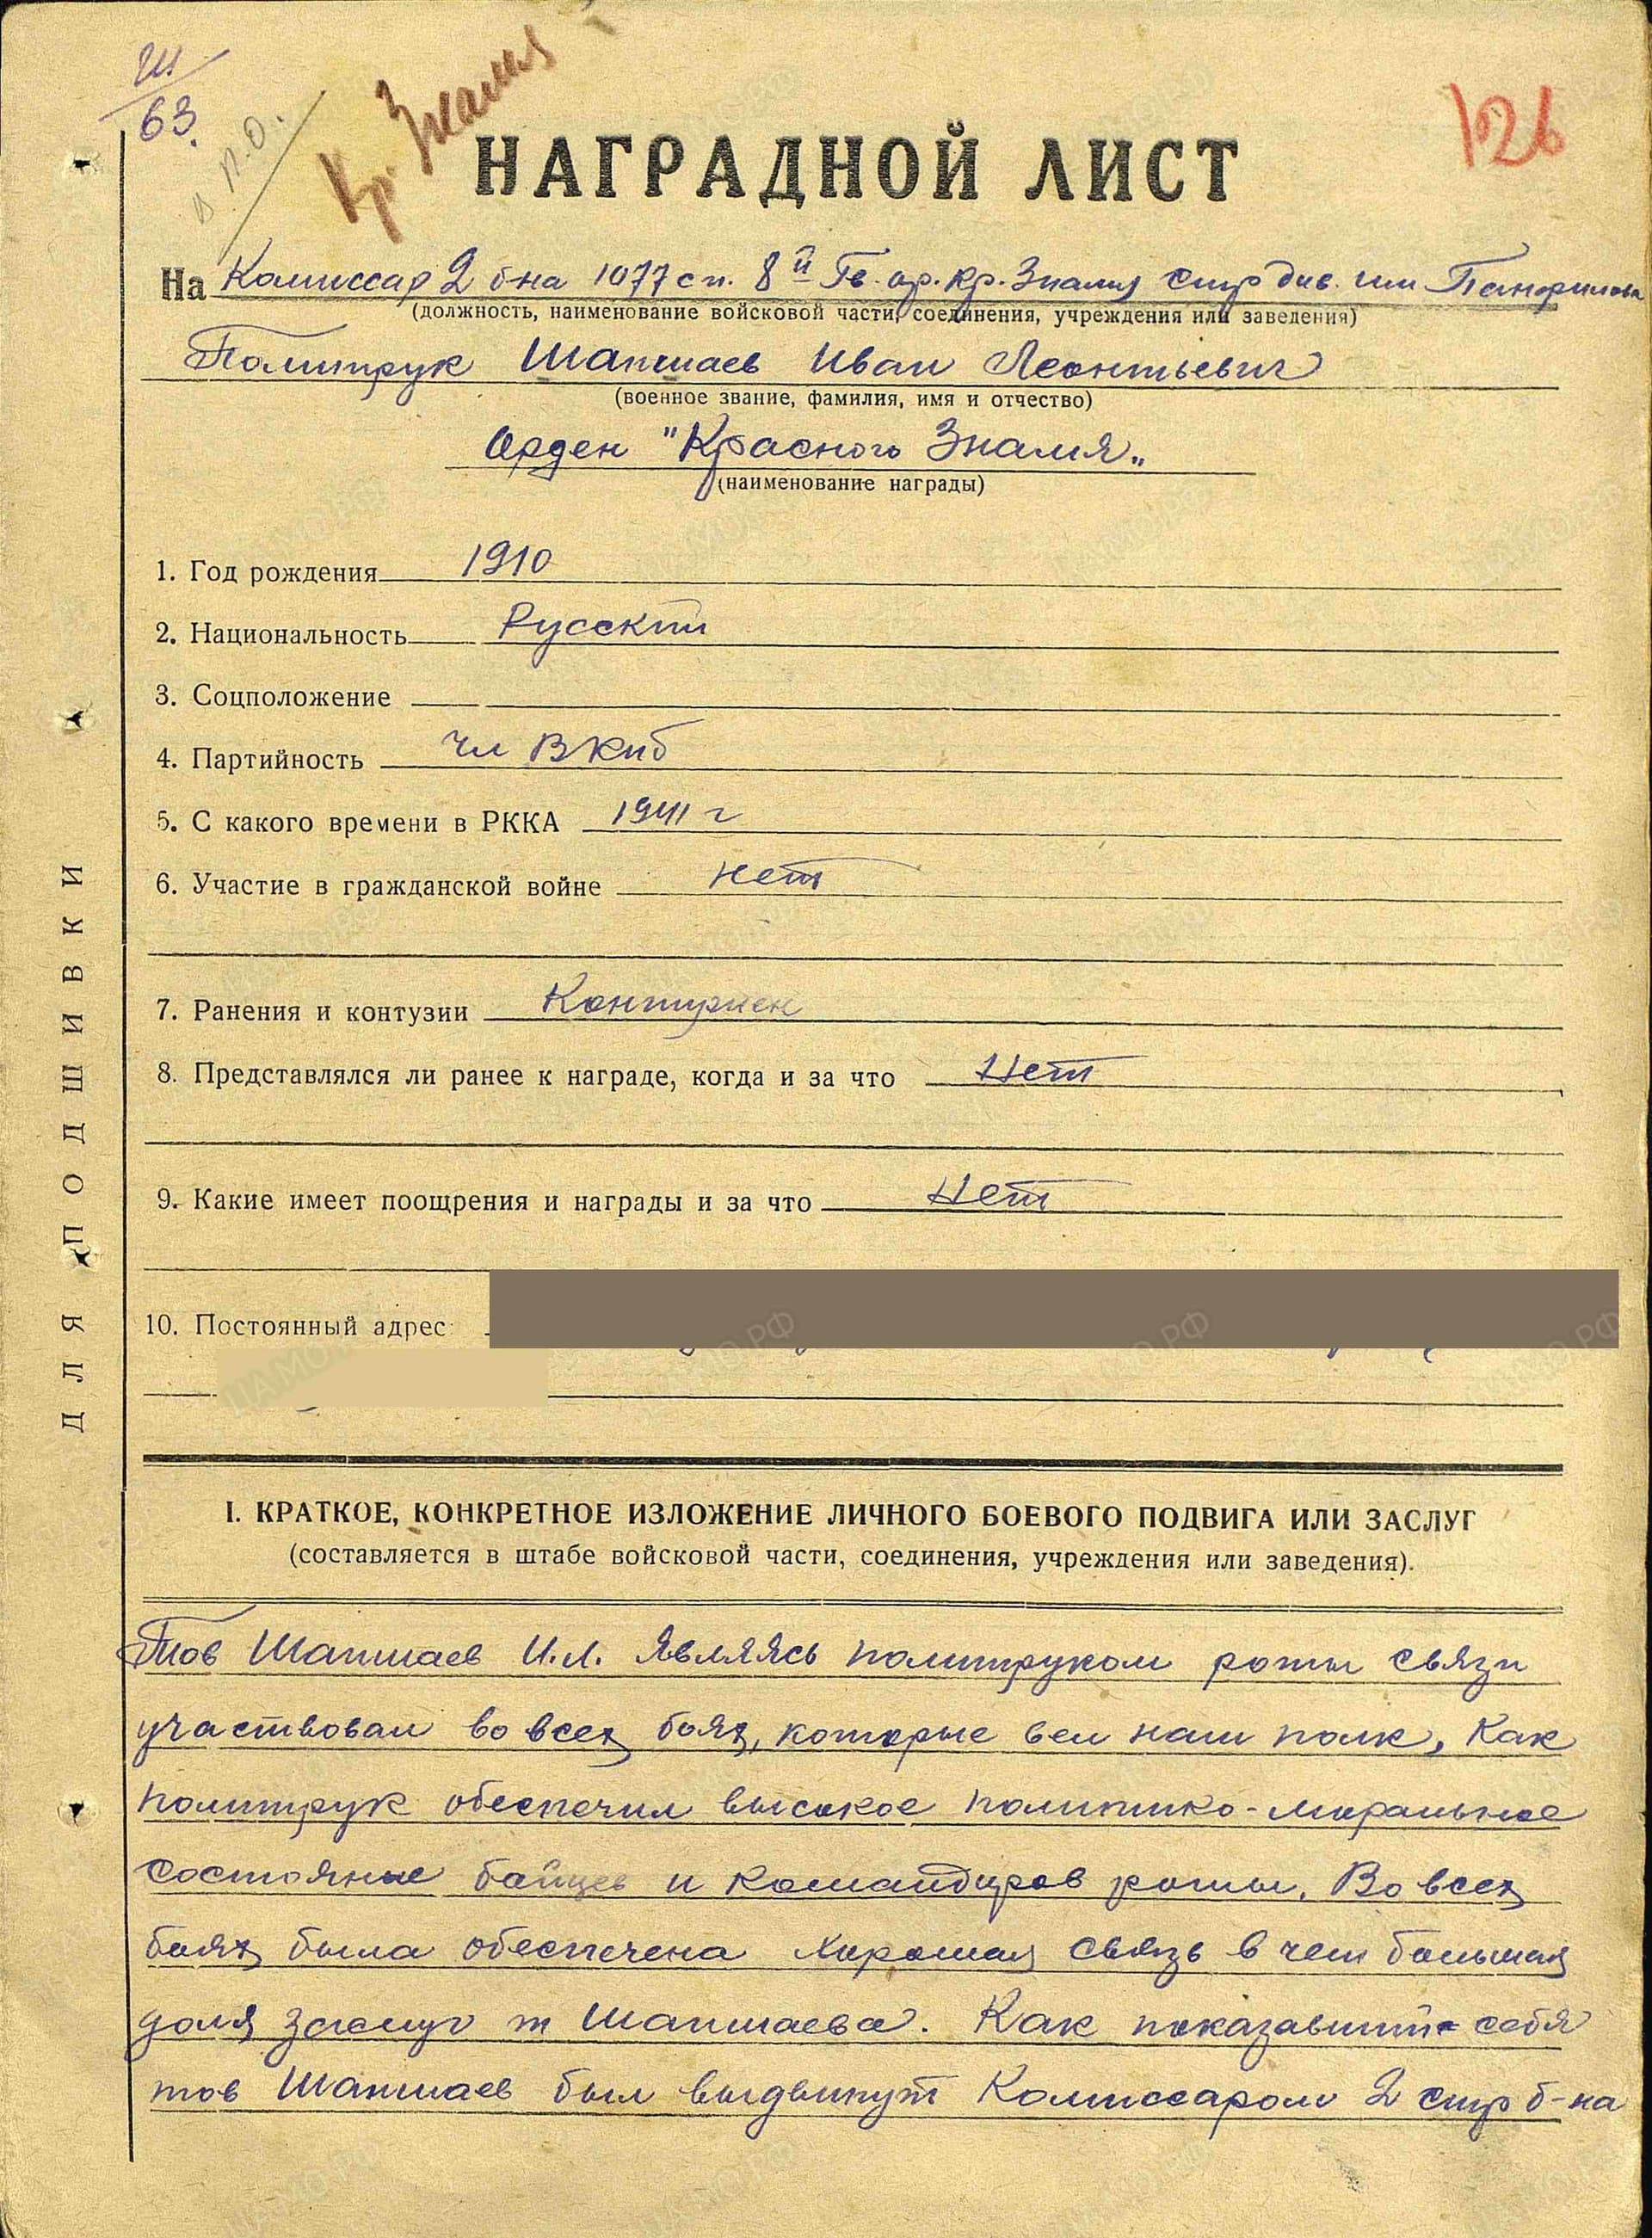 Ш
63.
в П.О.
Кр. Знамя
126
НАГРАДНОЙ ЛИСТ
На Комиссар 2 б-на 1077 сп. 8й Гв. ор. Кр. Знамя стр див. им Панфилова
(должность, наименование войсковой части, соединения, учреждения или заведения)
Политрук Шапшаев Иван Леонтьевич
(военное звание, фамилия, имя и отчество)
Орден "Красного Знамя"
(наименование награды)
1. Год рождения 1910
2. Национальность Русский
3. Соцположение
4. Партийность чл ВКпб
5. С какого времени в РККА 1941 г
6. Участие в гражданской войне нет
7. Ранения и контузии Контужен
8. Представлялся ли ранее к награде, когда и за что Нет
9. Какие имеет поощрения и награды и за что Нет
10. Постоянный адрес
ДЛЯ ПОДШИВКИ
I. КРАТКОЕ, КОНКРЕТНОЕ ИЗЛОЖЕНИЕ ЛИЧНОГО БОЕВОГО ПОДВИГА ИЛИ ЗАСЛУГ
(составляется в штабе войсковой части, соединения, учреждения или заведения).
Тов Шапшаев И.Л. Являясь политруком роты связи
участвовал во всех боях, которые вел наш полк, Как
политрук обеспечил высокое политико-моральное
состояние бойцев и командиров роты. Во всех
боях была обеспечена хорошая связь в чем большая
доля заслуг т Шапшаева. Как показавший себя
тов Шапшаев был выдвинут Комиссаром 2 стр б-на